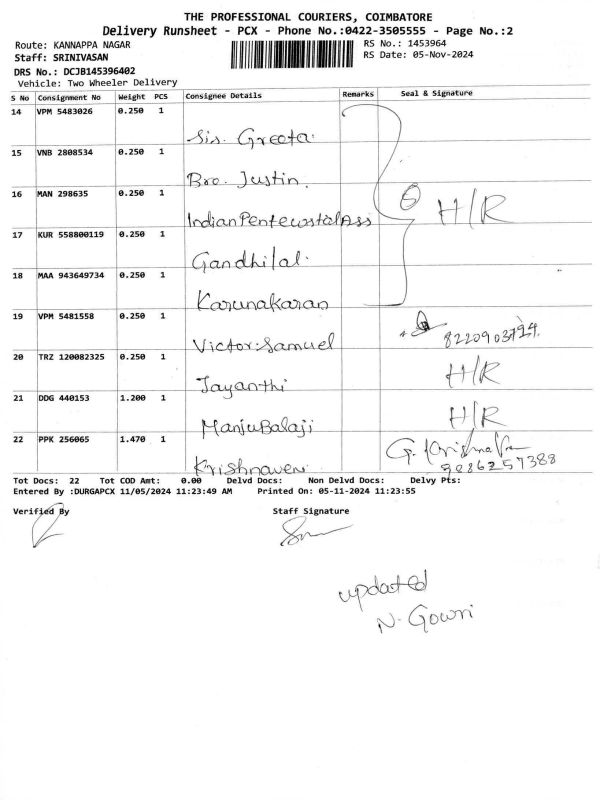 THE PROFESSIONAL COURIERS, COIMBATORE
Delivery Runsheet - PCX - Phone No.:0422-3505555 - Page No.:2
Route: KANNAPPA NAGAR
RS No.: 1453964
Staff: SRINIVASAN
RS Date: 05-Nov-2024
DRS No.: DCJB145396402
Vehicle: Two Wheeler Delivery
S No Consignment No Weight PCS Consignee Details Remarks Seal & Signature
14 VPM 5483026 0.250 1
Sis. Greeta.
15 VNB 2808534 0.250 1
Bro. Justin.
16 MAN 298635 0.250 1
Indian Pentecostal Ass
H/R
17 KUR 558800119 0.250 1
Gandhilal.
18 MAA 943649734 0.250 1
Karunakaran
19 VPM 5481558 0.250 1
Victor.Samuel
20 TRZ 120082325 0.250 1
Jayanthi
H/R
21 DDG 440153 1.200 1
ManjuBalaji
H/R
22 PPK 256065 1.470 1
Krishnaveni
Tot Docs: 22 Tot COD Amt: 0.00 Delvd Docs: Non Delvd Docs: Delvy Pts:
Entered By :DURGAPCX 11/05/2024 11:23:49 AM Printed On: 05-11-2024 11:23:55
Verified By Staff Signature
updated
N. Gowri